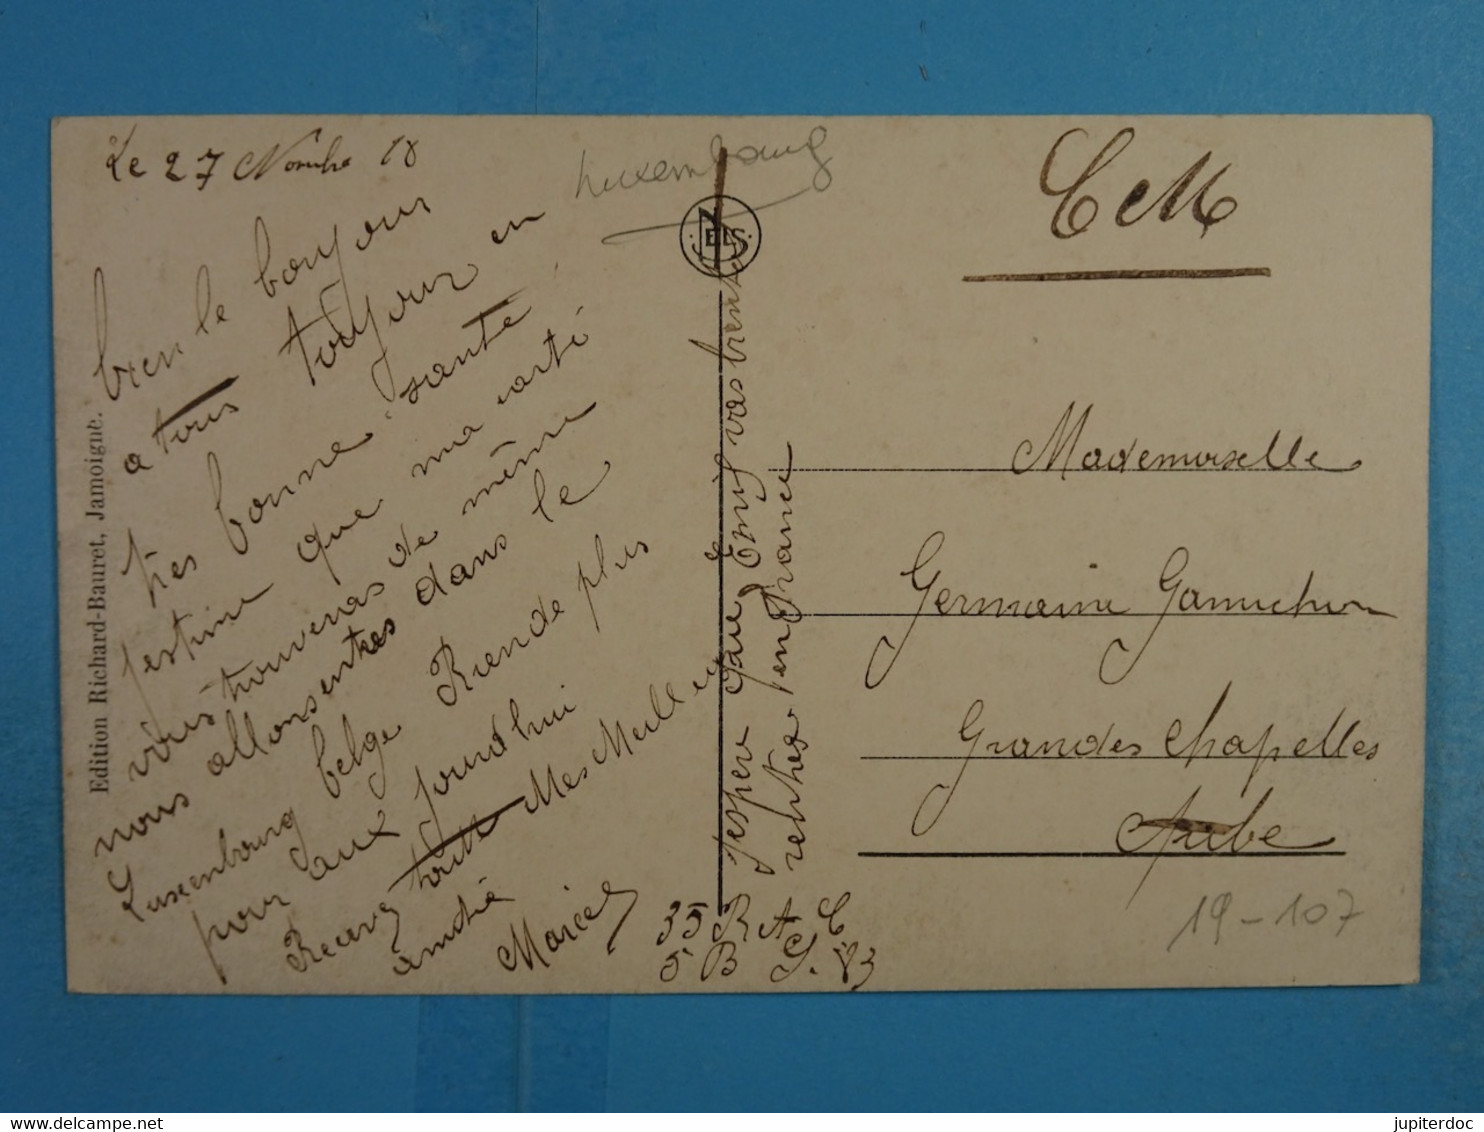 Le 27 Novembre 18
Luxembourg
bien le bonjour
a tous toujour en
tres bonne santé
j'espere que ma carte
vous trouveras de même
nous allons entres dans le
Luxembourg belge Rien de plus
pour aux jourd'hui
Recevez toutes Mes Meilleurs
amitié
Marcel
35 R A C
5 B S. 83
j'espere que Emil vas bientot
rentres en france
NELS
Edition Richard-Bauret, Jamoigne.
C M
Mademoiselle
Germaine
Grandes Chapelles
Aube
19-107
jupiterdoc